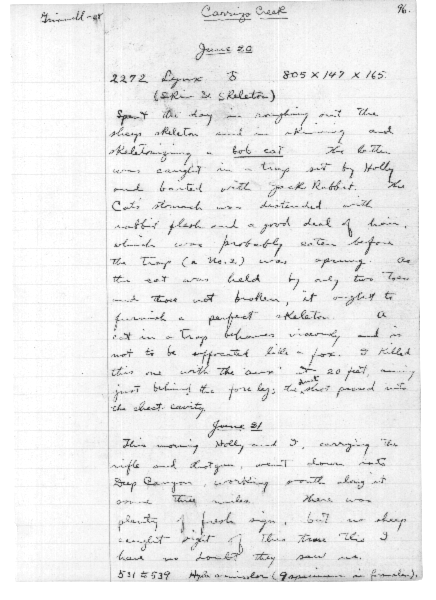 Grinnell-08
Carrizo Creek
96.
June 20
2272 Lynx ♂ 805 x 147 x 165.
(Skin & Skeleton)
Spent the day in roughing out the
sheep skeleton and in skinning and
skeletonizing a bob cat. The latter
was caught in a trap set by Holly
and baited with Jack Rabbit. The
Cat's stomach was distended with
rabbit flesh and a good deal of hair,
which was probably eaten before
the trap (a No. 2) was sprung. As
the cat was held by only two toes
and those not broken, it ought to
furnish a perfect skeleton. A
cat in a trap behaves viciously and is
not to be approached like a fox. I killed
this one with the aux' at 20 feet, aiming
just behind the fore leg; the dust shot passed into
the chest cavity.
June 21
This morning Holly and I, carrying the
rifle and shotgun, went down into
Deep Canyon, working south along it
some three miles. There was
plenty of fresh sign, but no sheep
caught sight of this time tho I
have no doubt they saw us.
531 to 539 Hyla arenicolor (9 specimens in formalin).